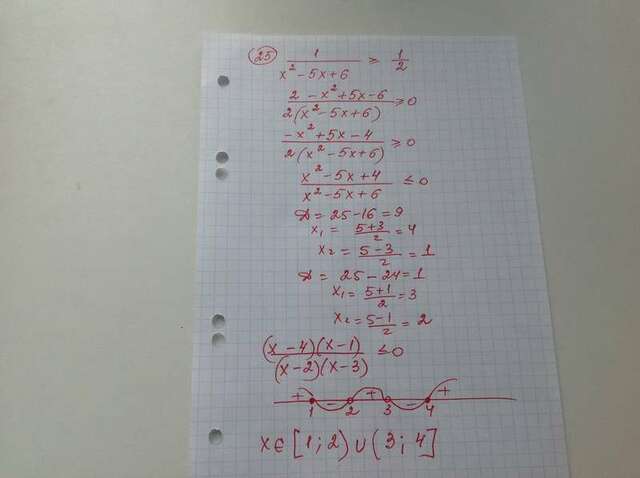 25 1/(x² - 5x + 6) ≥ 1/2
(2 - x² + 5x - 6)/(2(x² - 5x + 6)) ≥ 0
(-x² + 5x - 4)/(2(x² - 5x + 6)) ≥ 0
(x² - 5x + 4)/(x² - 5x + 6) ≤ 0
D = 25 - 16 = 9
x₁ = (5+3)/2 = 4
x₂ = (5-3)/2 = 1
D = 25 - 24 = 1
x₁ = (5+1)/2 = 3
x₂ = (5-1)/2 = 2
(x - 4)(x - 1)/(x - 2)(x - 3) ≤ 0
+ - + - +
1 2 3 4
x ∈ [1; 2) ∪ (3; 4]